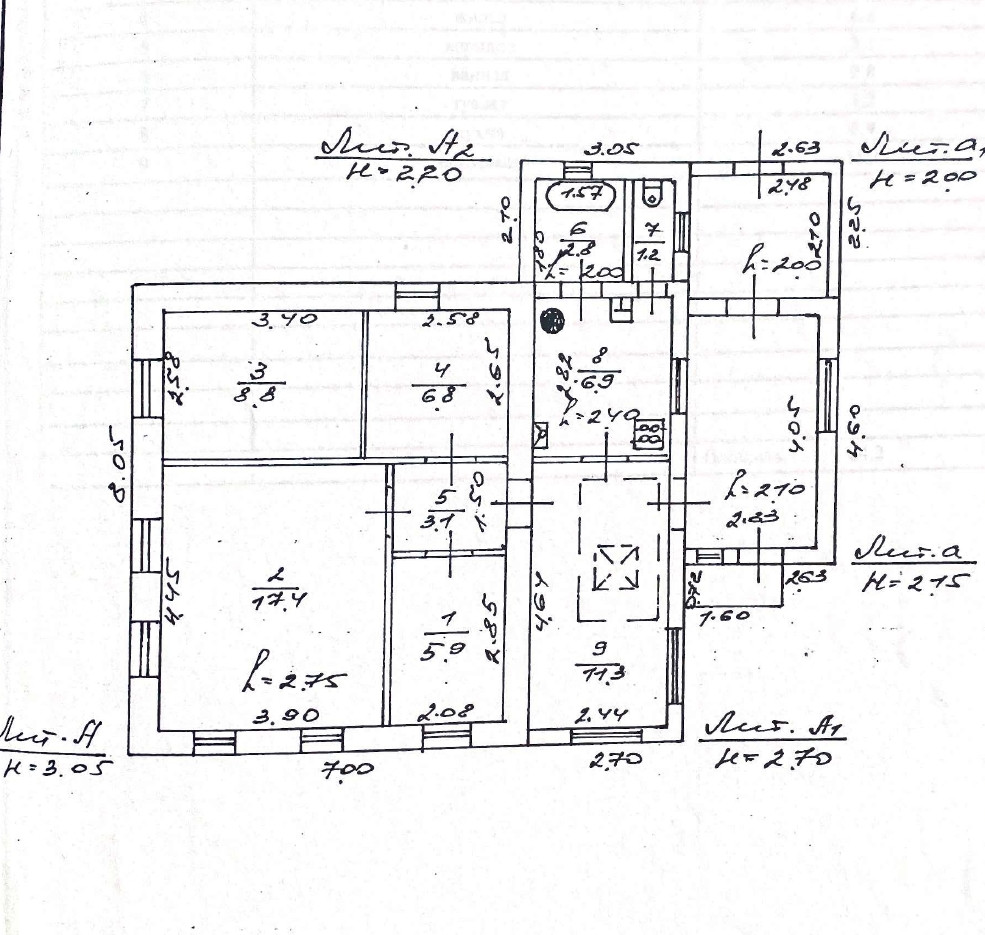 Лит. А2
Н=2.20
3.05
2.63
Лит. а1
Н=2.00
1.57
2.48
2.10
6
2.8
1.80
h=2.00
7
1.2
2.10
2.25
h=2.00
3.40
2.58
2.58
3
8.8
4
6.8
2.65
2.82
8
6.9
h=2.40
4.04
4.60
8.05
5
3.1
1.50
h=2.10
2.33
Лит. а
Н=2.15
2.63
1.60
4.45
2
17.4
4.64
1
5.9
2.85
9
11.3
h=2.75
3.90
2.08
2.44
Лит. А
Н=3.05
7.00
2.70
Лит. А1
Н=2.70